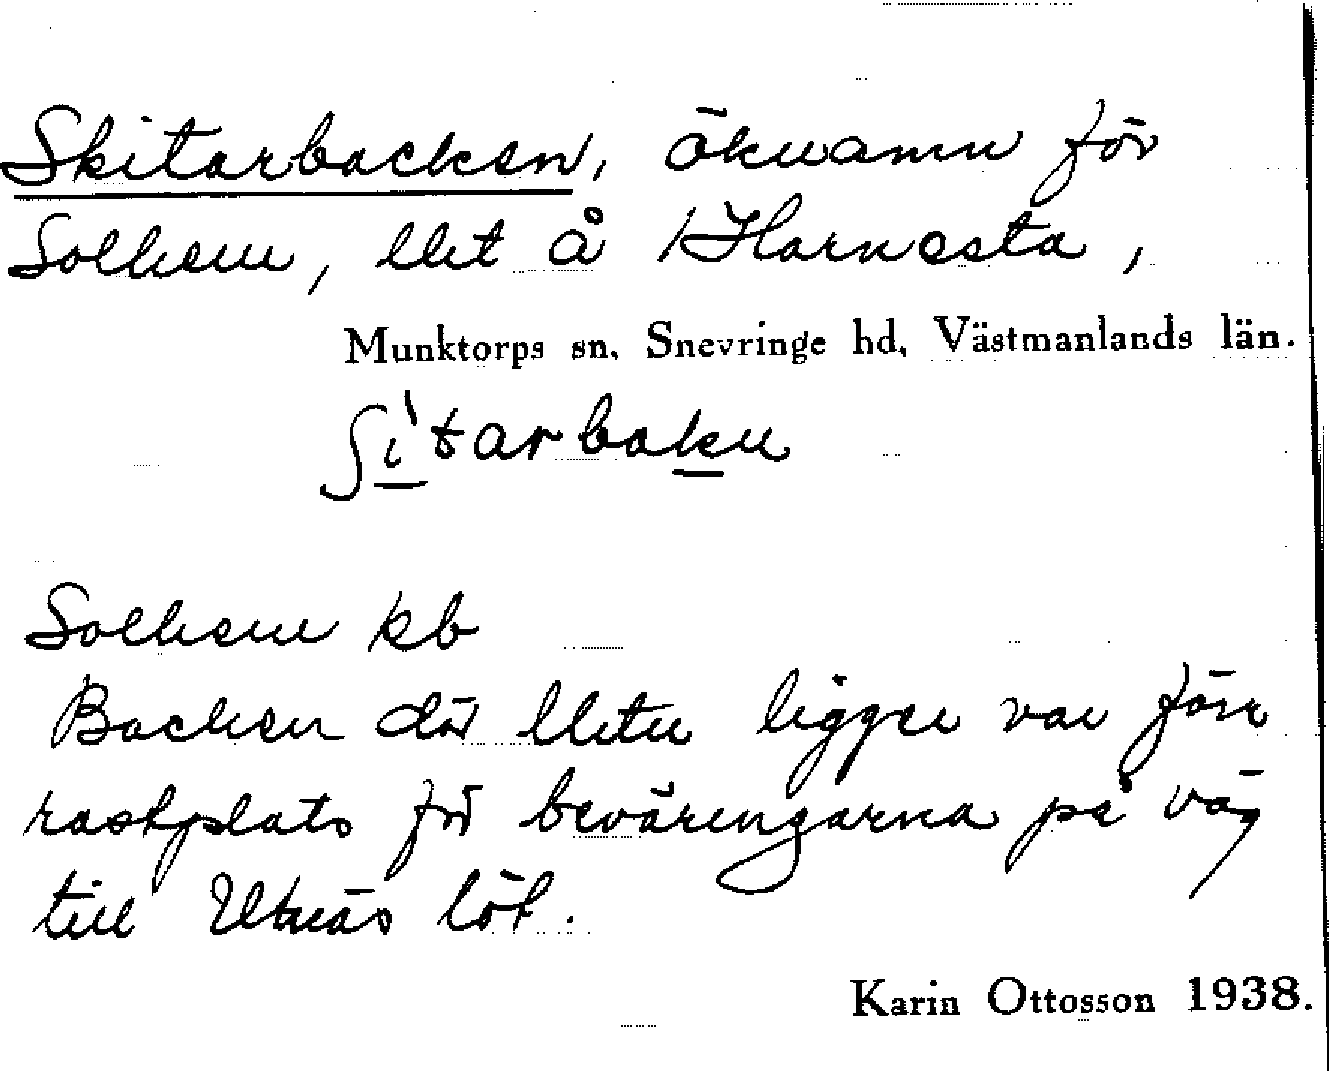 Skitarbacken, öknamn för
Solhem, llet å Harnesta,
Munktorps sn, Snevringe hd, Västmanlands län.
ʃi̱'tarbak̲n
Solhem kb
Backen där lletn ligger var förr
rastplats för beväringarna på väg
till Utnäs löt.
Karin Ottosson 1938.